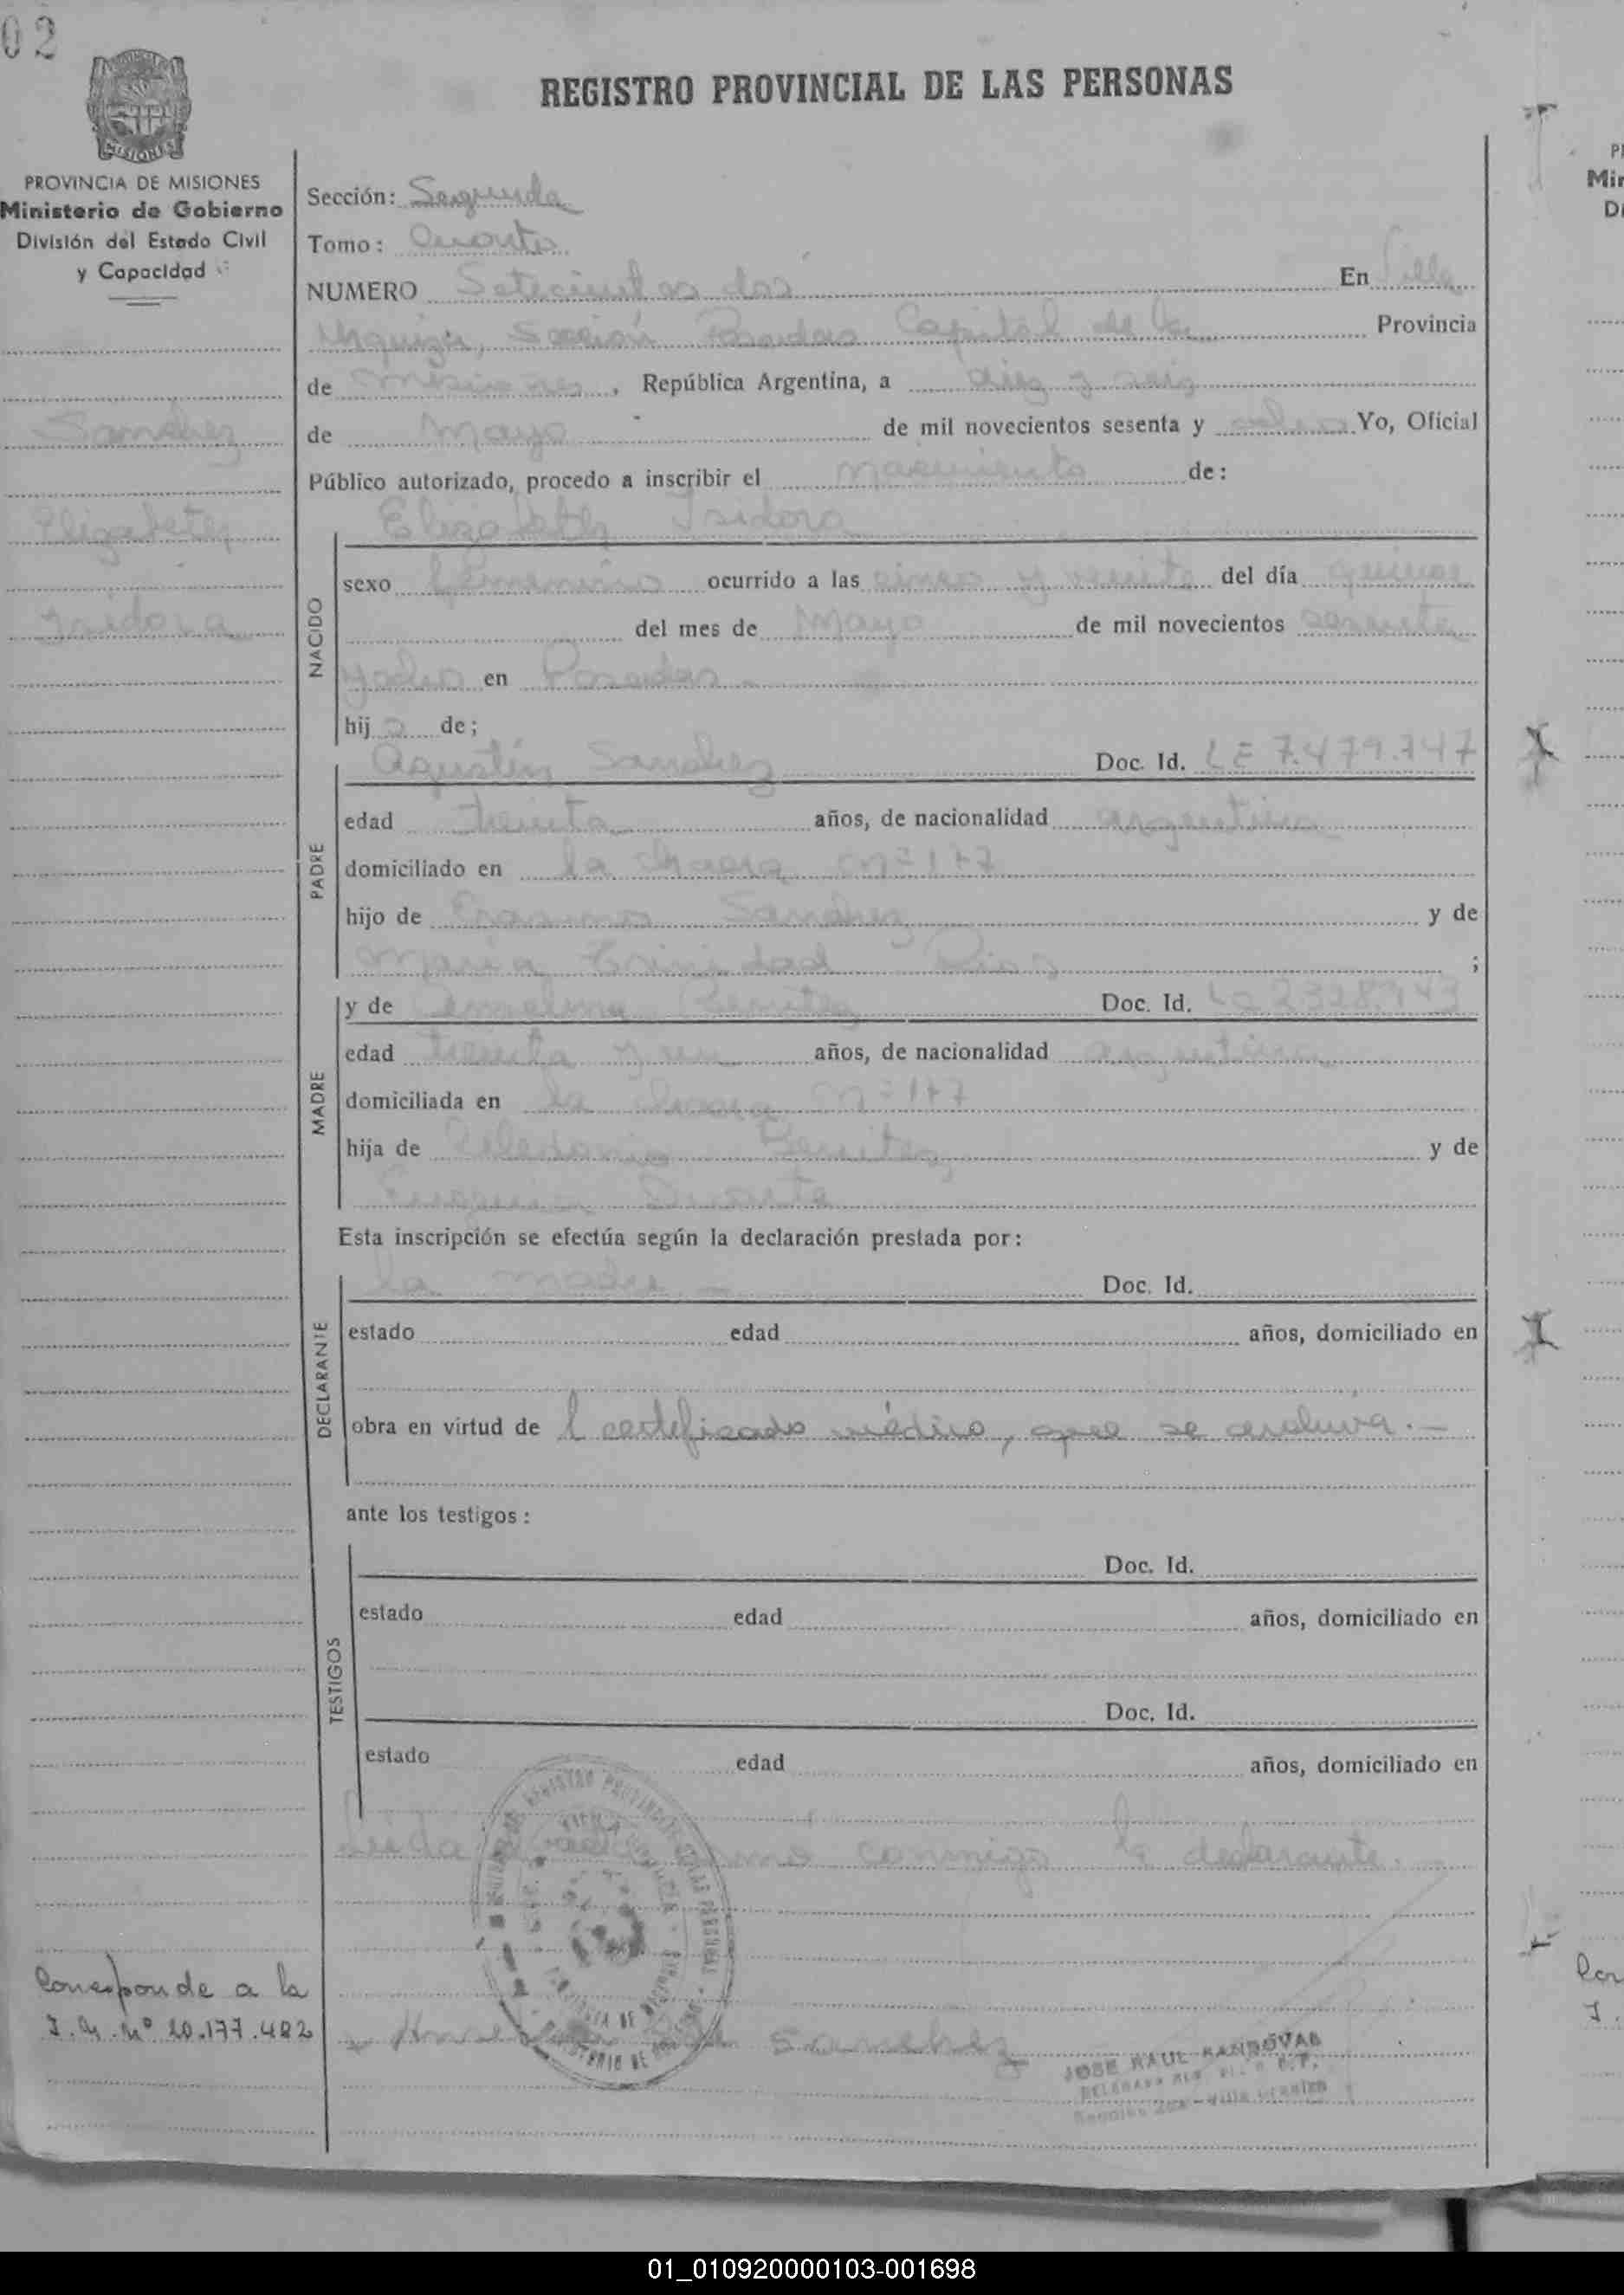 02
REGISTRO PROVINCIAL DE LAS PERSONAS
MISIONES
PROVINCIA DE MISIONES
Ministerio de Gobierno
División del Estado Civil
y Capacidad
Sanchez
Elizabeth
Isidora
Sección: Segunda
Tomo: Cuarto
NUMERO Setecientos dos En Villa
Urquiza, Sección Posadas Capital de la Provincia
de Misiones, República Argentina, a diez y seis
de Mayo de mil novecientos sesenta y ocho Yo, Oficial
Público autorizado, procedo a inscribir el nacimiento de:
Elizabeth Isidora
NACIDO
sexo femenino ocurrido a las cinco y veinte del día quince
del mes de Mayo de mil novecientos sesenta
y ocho en Posadas -
hija de;
PADRE
Agustín Sanchez Doc. Id. LE 7.479.747
edad treinta años, de nacionalidad argentina
domiciliado en la chacra Nº 147
hijo de Erasmo Sanchez y de
Maria Trinidad Rios ;
MADRE
y de Benitez Doc. Id.
edad treinta y un años, de nacionalidad argentina
domiciliada en la chacra Nº 147
hija de Celedonio Benitez y de
Duarte
Esta inscripción se efectúa según la declaración prestada por:
DECLARANTE
la madre - Doc. Id.
estado edad años, domiciliado en
obra en virtud de l certificado médico, que se archiva.-
ante los testigos:
TESTIGOS
Doc. Id.
estado edad años, domiciliado en
Doc. Id.
estado edad años, domiciliado en
Leida firmó conmigo la declarante.
Corresponde a la
Nº 20.177.482
Sanchez
JOSE RAUL SANDOVAL
Villa Urquiza
01_010920000103-001698